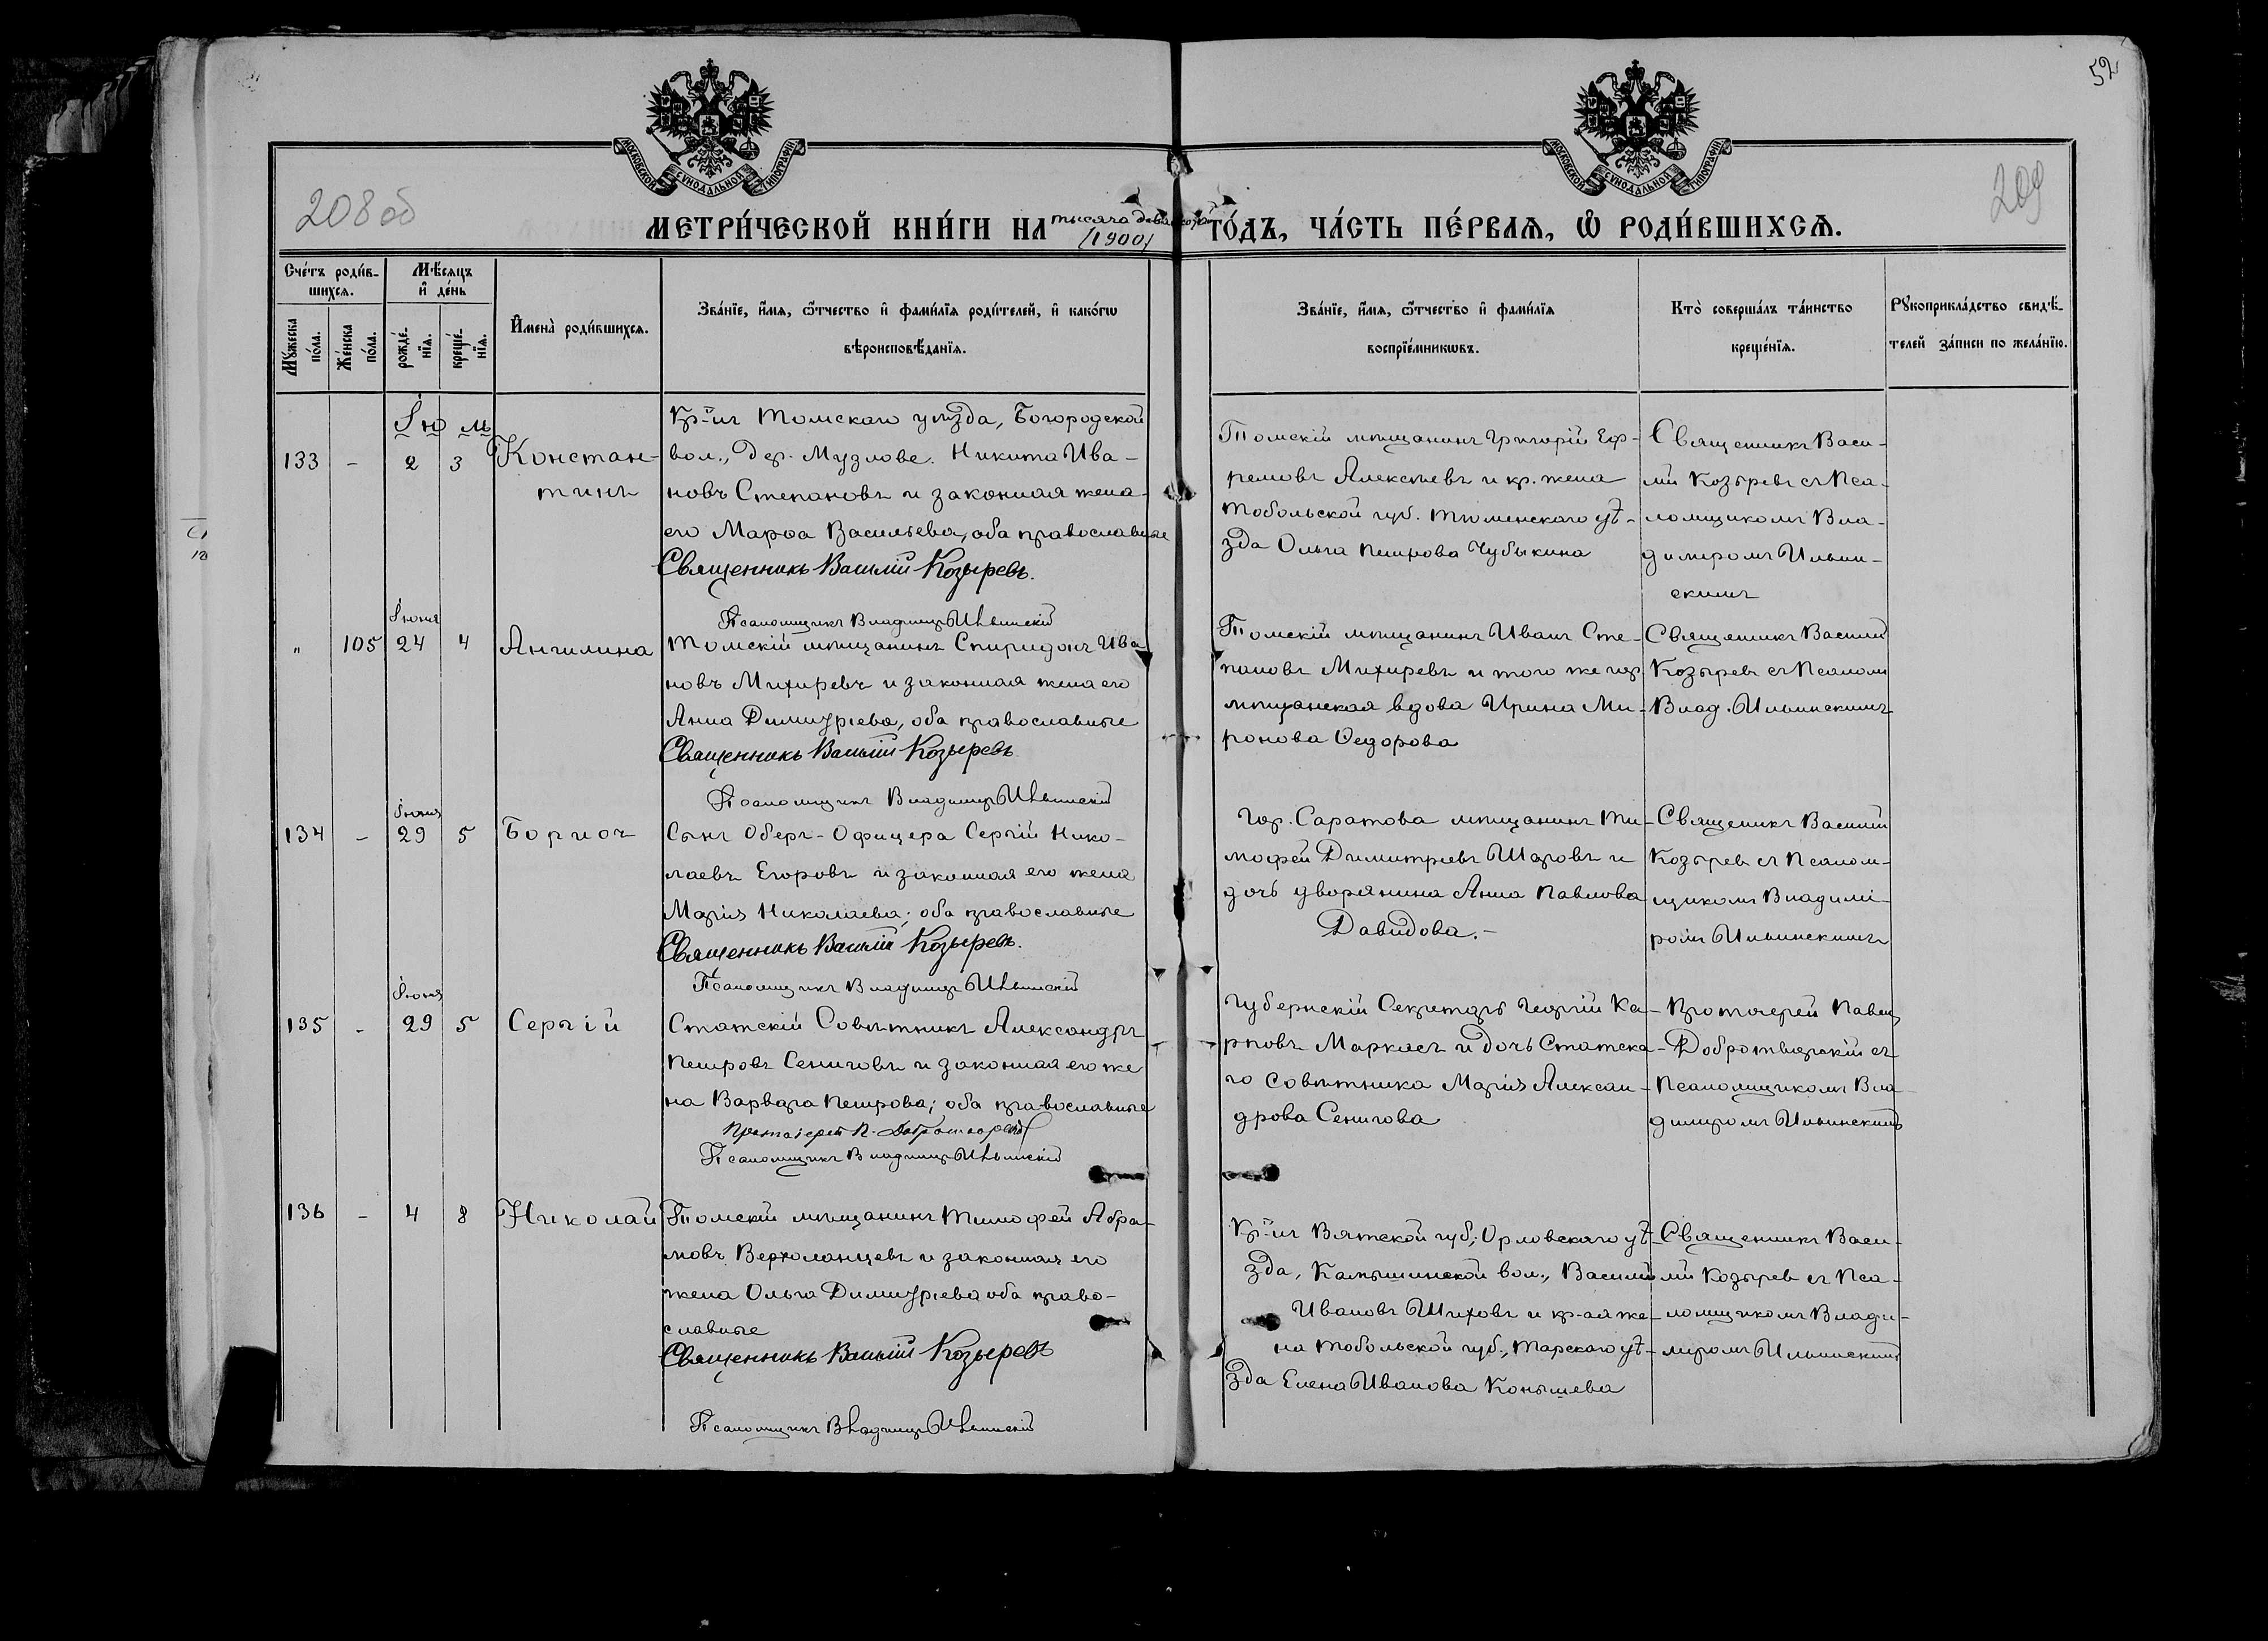 52
208 об
209
МОСКОВСКОЙ СѴНОДАЛЬНОЙ ТИПОГРАФІИ
МОСКОВСКОЙ СѴНОДАЛЬНОЙ ТИПОГРАФІИ
МЕТРИ́ЧЕСКОЙ КНИ́ГИ НА тысяча девятсотый /1900/ ГО́ДЪ, ЧА́СТЬ ПЕ́РВАѦ, Ѽ РОДИ́ВШИХСѦ.
Сче́тъ роди́в-
шихсѧ.
Мꙋ́жеска по́ла.
Же́нска по́ла.
Мѣ́сѧцъ
и҆ де́нь
рожде́-
нїѧ.
креще́-
нїѧ.
И҆мена̀ роди́вшихсѧ.
Зва́нїе, и҆́мѧ, ѻ҆́тчество и҆ фами́лїѧ роди́телей, и҆ како́гѡ
вѣроисповѣ́данїѧ.
Зва́нїе, и҆́мѧ, ѻ҆́тчество и҆ фами́лїѧ
воспрїе́мникѡвъ.
Кто̀ соверша́лъ та́инство
креще́нїѧ.
Рꙋкоприкла́дство свидѣ́-
телей за́писи по жела́нїю.
Іюль
133 - 2 3 Констан-
тинъ
Кр-нъ Томскаго уѣзда, Богородской
вол., дер. Музлове. Никита Ива-
новъ Степановъ и законная жена
его Марѳа Васильева, оба православные
Священникъ Василій Козыревъ.
Псаломщикъ Владиміръ Ильинскій
Томскій мѣщанинъ Григорій Еф-
ремовъ Алексѣевъ и кр. жена
Тобольской губ. Тюменскаго уѣ-
зда Ольга Петрова Чубыкина
Священникъ Васи-
лій Козыревъ съ Пса-
ломщикомъ Вла-
диміромъ Ильин-
скимъ
Іюня
" 105 24 4 Ангилина
Томскій мѣщанинъ Спиридонъ Ива
новъ Михиревъ и законная жена его
Анна Димитріева, оба православные
Священникъ Василій Козыревъ
Псаломщикъ Владиміръ Ильинскій
Томскій мѣщанинъ Иванъ Сте-
пановъ Михиревъ и того же гор.
мѣщанская вдова Ирина Ми-
ронова Ѳедорова
Священникъ Василій
Козыревъ съ Псалом
Влад. Ильинскимъ
Іюня
134 - 29 5 Борисъ
Сынъ Оберъ-Офицера Сергій Нико-
лаевъ Егоровъ и законная его жена
Марія Николаева; оба православные
Священникъ Василій Козыревъ.
Псаломщикъ Владиміръ Ильинскій
Гор. Саратова мѣщанинъ Ти-
мофей Димитріевъ Шаровъ и
дочь дворянина Анна Павлова
Давидова.-
Священникъ Василій
Козыревъ съ Псалом-
щикомъ Владимі-
ромъ Ильинскимъ
Іюня
135 - 29 5 Сергій
Статскій Совѣтникъ Александръ
Петровъ Сениговъ и законная его же
на Варвара Петрова; оба православные
Протоіерей П. Добротворскій
Псаломщикъ Владиміръ Ильинскій
Губернскій Секретарь Георгій Ка-
рповъ Маркисъ и дочь Статска-
го Совѣтника Марія Алексан-
дрова Сенигова
Протоіерей Павелъ
Добротворскій съ
Псаломщикомъ Вла-
диміромъ Ильинскимъ
136 - 4 8 Николай
Томскій мѣщанинъ Тимофей Абра-
мовъ Верхоланцевъ и законная его
жена Ольга Димитріева оба право-
славные
Священникъ Василій Козыревъ
Псаломщикъ Владиміръ Ильинскій
Кр-нъ Вятской губ., Орловскаго уѣ-
зда, Камышинской вол., Василій
Ивановъ Шиховъ и кр-ая же-
на Тобольской губ., Тарскаго уѣ-
зда Елена Иванова Конышева
Священникъ Васи-
лій Козыревъ съ Пса-
ломщикомъ Влади-
міромъ Ильинскимъ